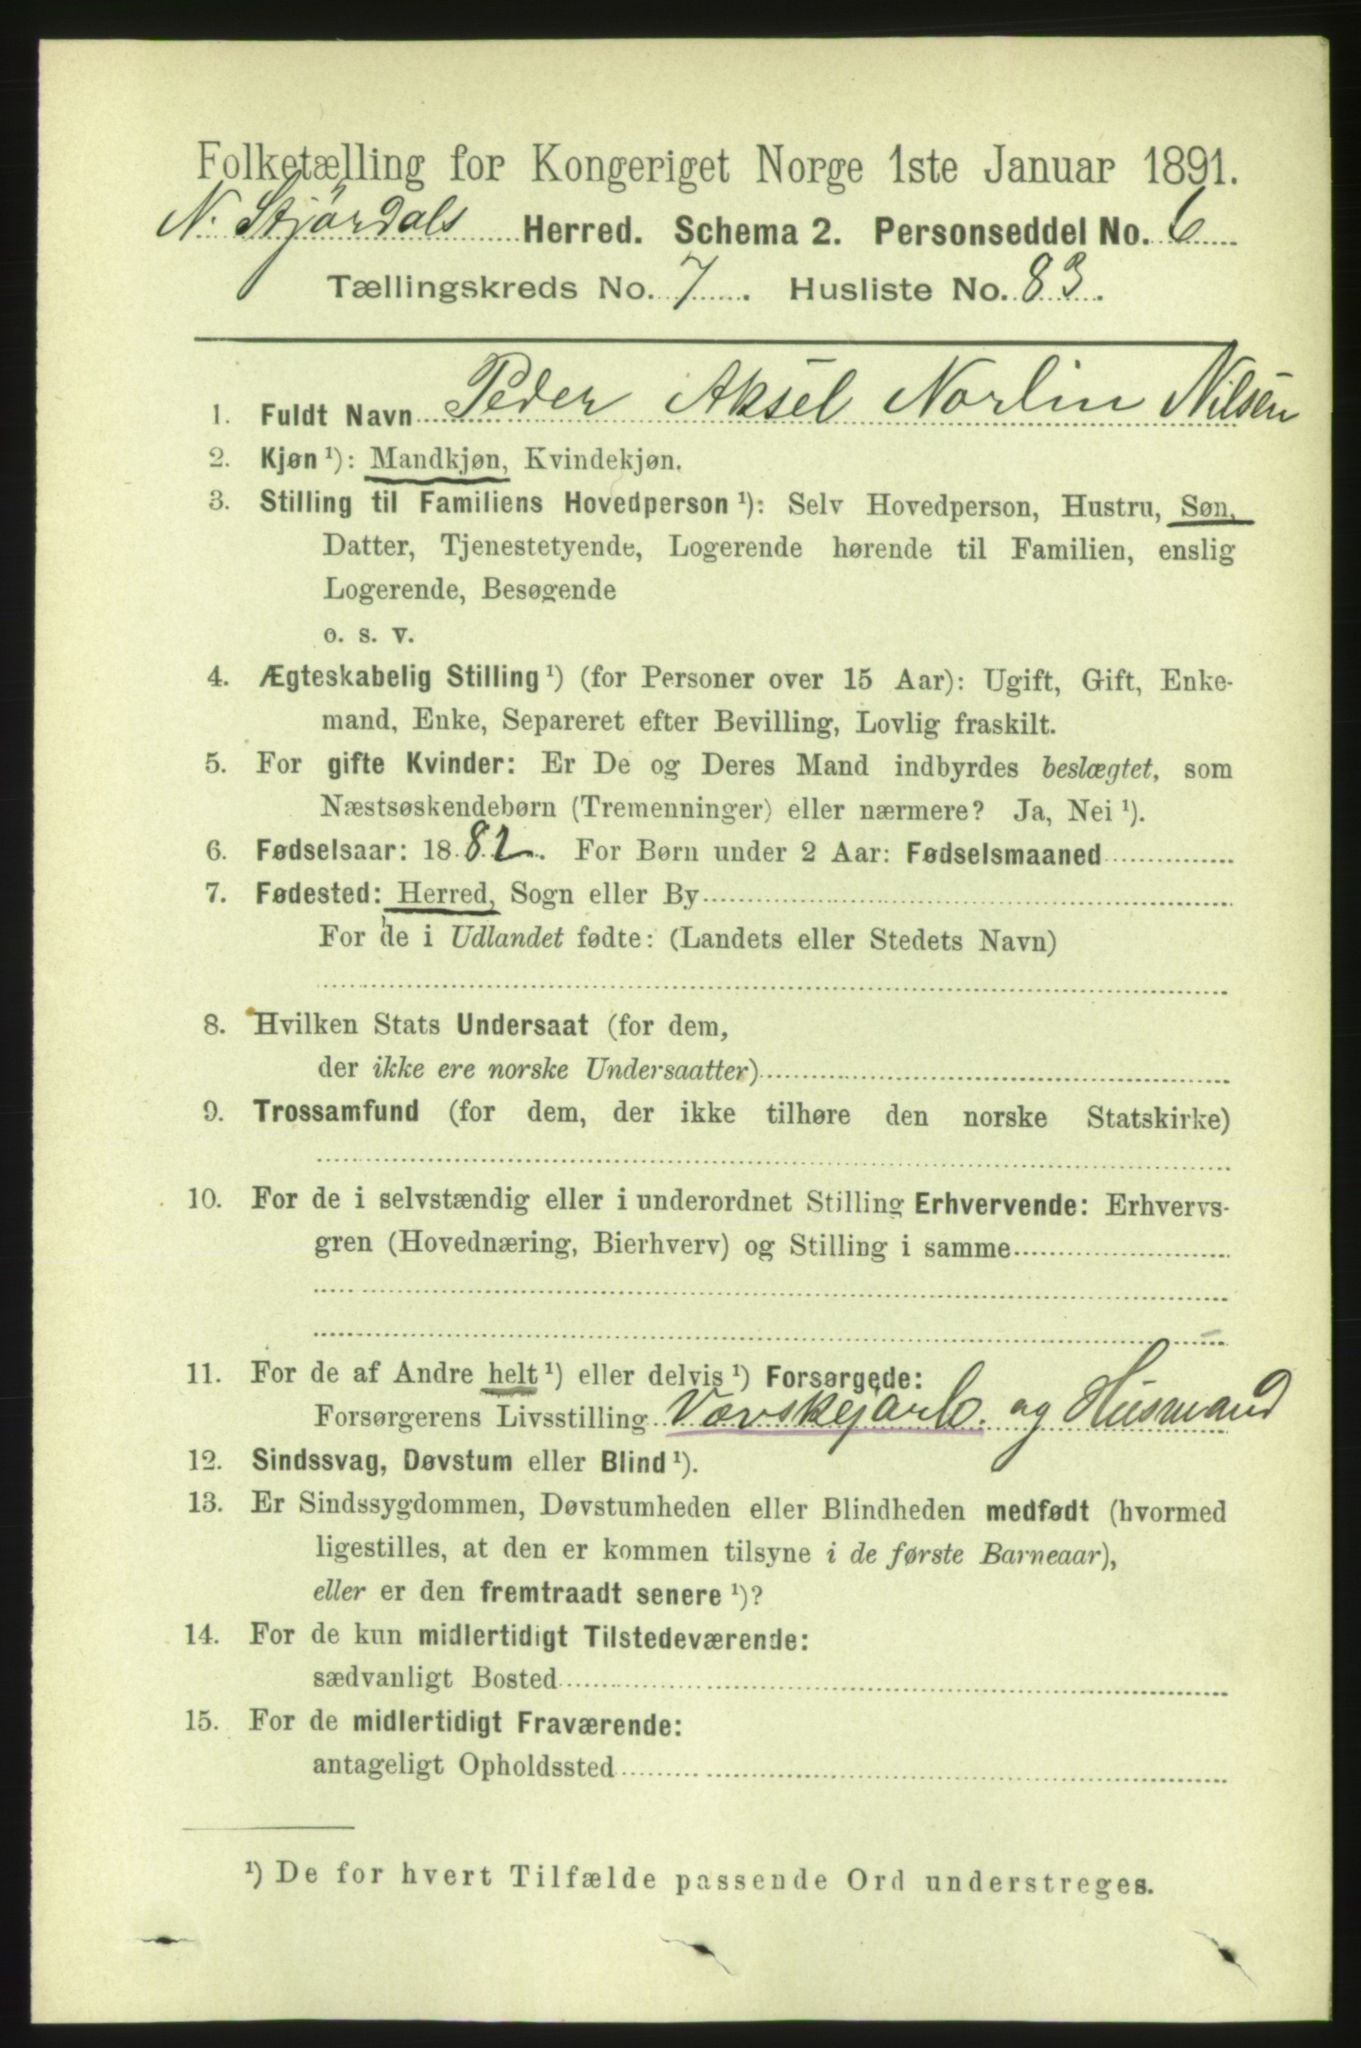 Folketælling for Kongeriget Norge 1ste Januar 1891.
N. Stjördals Herred. Schema 2. Personseddel No. 6
Tællingskreds No. 7. Husliste No. 83.
1. Fuldt Navn Peder Aksel Norlin Nilsen
2. Kjøn ¹): Mandkjøn, Kvindekjøn.
3. Stilling til Familiens Hovedperson ¹): Selv Hovedperson, Hustru, Søn,
Datter, Tjenestetyende, Logerende hørende til Familien, enslig
Logerende, Besøgende
o. s. v.
4. Ægteskabelig Stilling ¹) (for Personer over 15 Aar): Ugift, Gift, Enke-
mand, Enke, Separeret efter Bevilling, Lovlig fraskilt.
5. For gifte Kvinder: Er De og Deres Mand indbyrdes beslægtet, som
Næstsøskendebørn (Tremenninger) eller nærmere? Ja, Nei ¹).
6. Fødselsaar: 1882. For Børn under 2 Aar: Fødselsmaaned
7. Fødested: Herred, Sogn eller By
For de i Udlandet fødte: (Landets eller Stedets Navn)
8. Hvilken Stats Undersaat (for dem,
der ikke ere norske Undersaatter)
9. Trossamfund (for dem, der ikke tilhøre den norske Statskirke)
10. For de i selvstændig eller i underordnet Stilling Erhvervende: Erhvervs-
gren (Hovednæring, Bierhverv) og Stilling i samme
11. For de af Andre helt ¹) eller delvis ¹) Forsørgede:
Forsørgerens Livsstilling Vævskejarb. og Husmand
12. Sindssvag, Døvstum eller Blind ¹).
13. Er Sindssygdommen, Døvstumheden eller Blindheden medfødt (hvormed
ligestilles, at den er kommen tilsyne i de første Barneaar),
eller er den fremtraadt senere ¹)?
14. For de kun midlertidigt Tilstedeværende:
sædvanligt Bosted
15. For de midlertidigt Fraværende:
antageligt Opholdssted
¹) De for hvert Tilfælde passende Ord understreges.